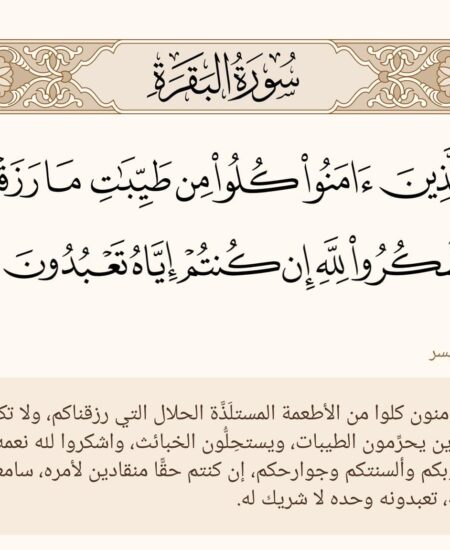 سُورَةُ البَقَرَةِ
ءَامَنُوا۟ كُلُوا۟ مِن طَيِّبَٰتِ مَا
لِلَّهِ إِن كُنتُمْ إِيَّاهُ تَعْبُدُونَ
كلوا من الأطعمة المستلَذَّة الحلال التي رزقناكم، ولا
يحرِّمون الطيبات، ويستحِلُّون الخبائث، واشكروا لله
وألسنتكم وجوارحكم، إن كنتم حقًّا منقادين لأمره،
تعبدونه وحده لا شريك له.